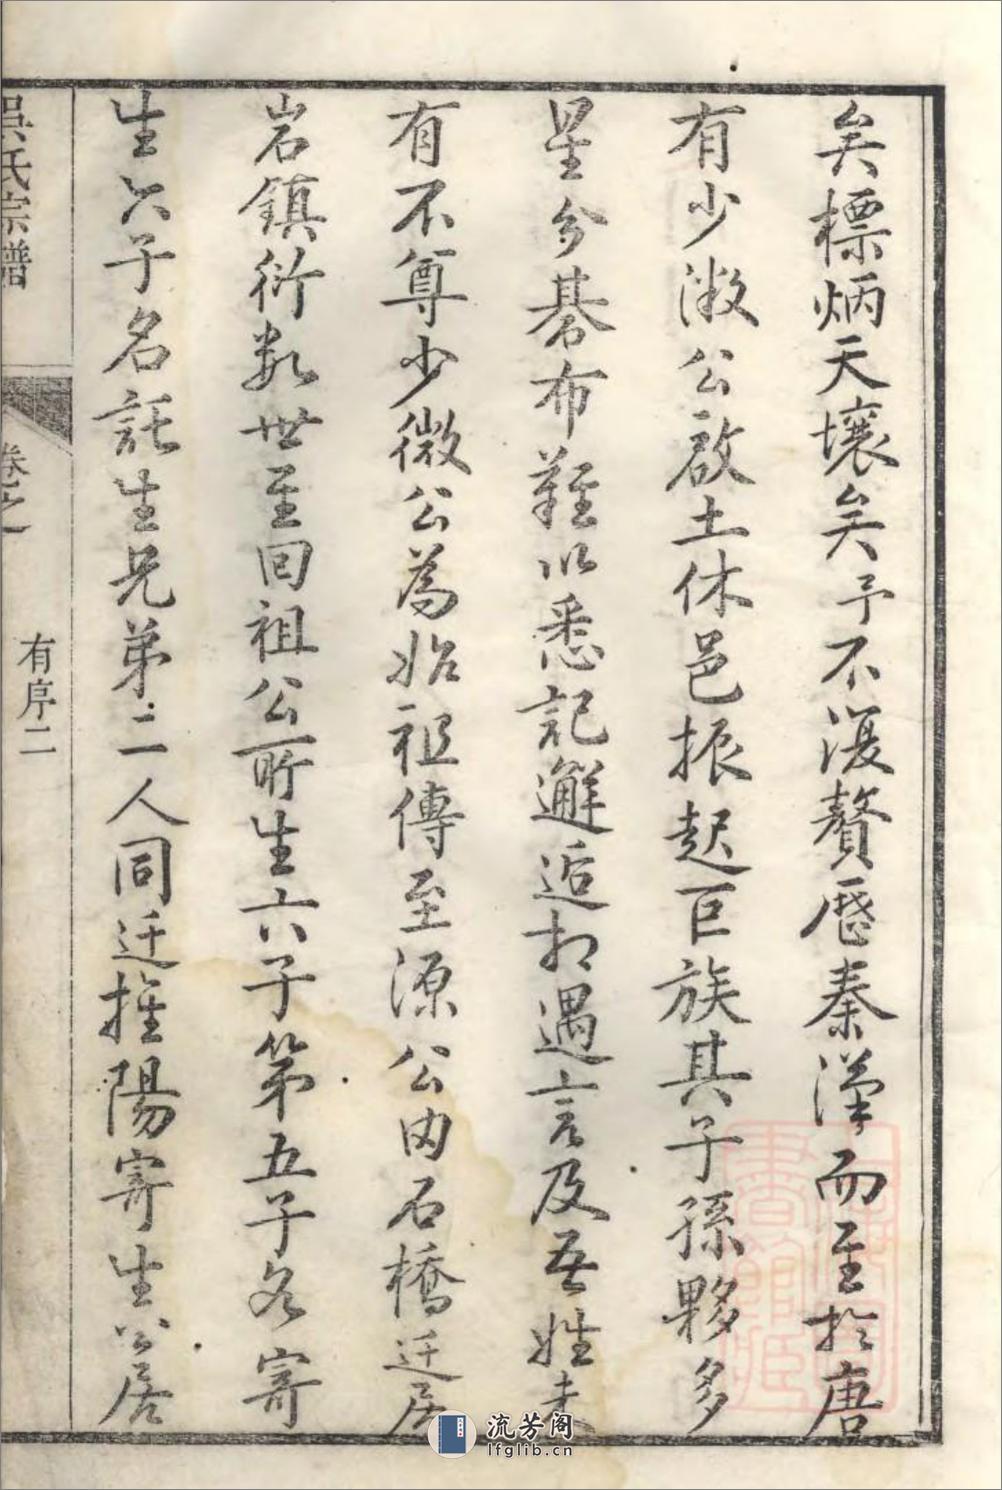 矣標炳天壤矣予不復贅歷秦漢而至於唐
有少微公啟土休邑振起巨族其子孫夥多
星分碁布難以悉記邂逅相遇言及吾姓未
有不尊少微公為始祖傳至源公由石橋迁居
岩鎮衍数世至回祖公所生六子第五子名寄
生六子名託生兄弟二人同迁摧陽寄生公居
吳氏宗譜
卷之
有序二
流芳阁
lfglib.cn